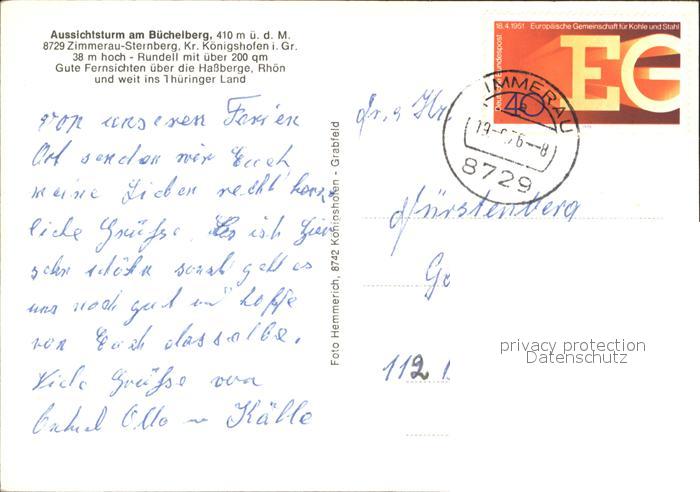 Aussichtsturm am Büchelberg, 410 m ü. d. M.
8729 Zimmerau-Sternberg, Kr. Königshofen i. Gr.
38 m hoch - Rundell mit über 200 qm
Gute Fernsichten über die Haßberge, Rhön
und weit ins Thüringer Land
von unseren Ferien
Ort senden wir Euch
meine Lieben recht herz-
liche Grüße. Es ist hier
sehr schön sonst geht es
uns noch gut und hoffe
von Euch dasselbe.
Viele Grüße von
Onkel Otto u Käthe
Foto Hemmerich, 8742 Königshofen - Grabfeld
18.4.1951 Europäische Gemeinschaft für Kohle und Stahl
Deutsche Bundespost
EG
40
IMMERAU
76-8
8729
Hr.
Fürstenberg
112
privacy protection
Datenschutz